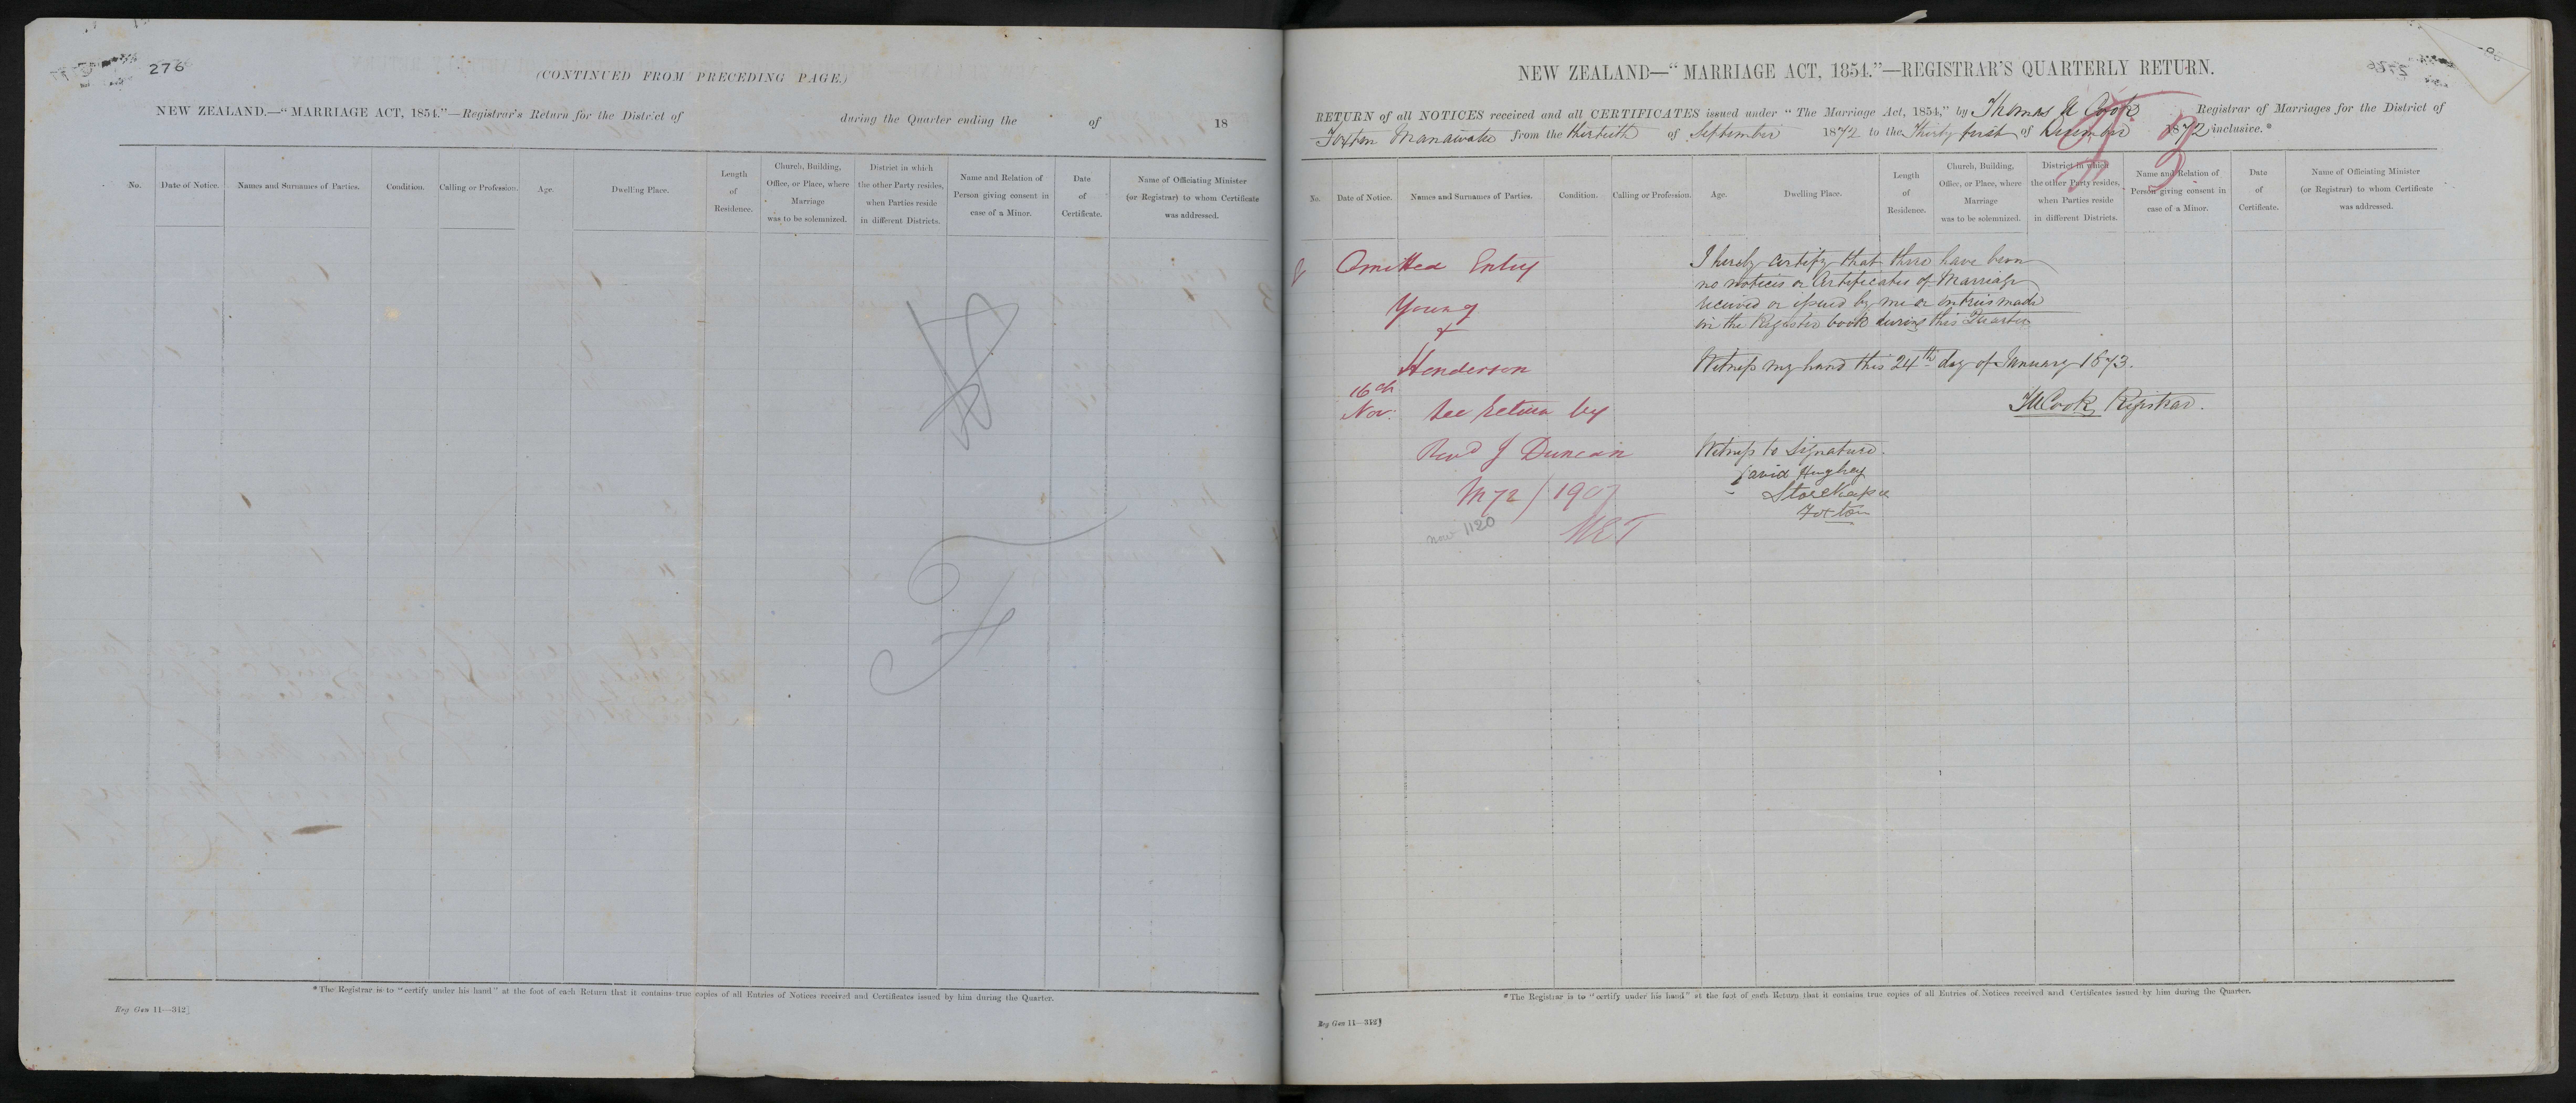 276
(CONTINUED FROM PRECEDING PAGE.)
NEW ZEALAND.—"MARRIAGE ACT, 1854."—Registrar's Return for the District of during the Quarter ending the of 18
No. Date of Notice. Names and Surnames of Parties. Condition. Calling or Profession. Age. Dwelling Place. Length of Residence. Church, Building, Office, or Place, where Marriage was to be solemnized. District in which the other Party resides, when Parties reside in different Districts. Name and Relation of Person giving consent in case of a Minor. Date of Certificate. Name of Officiating Minister (or Registrar) to whom Certificate was addressed.
*The Registrar is to "certify under his hand" at the foot of each Return that it contains true copies of all Entries of Notices received and Certificates issued by him during the Quarter.
Reg Gen 11—312]
NEW ZEALAND—"MARRIAGE ACT, 1854."—REGISTRAR'S QUARTERLY RETURN.
RETURN of all NOTICES received and all CERTIFICATES issued under "The Marriage Act, 1854," by Thomas U Cook Registrar of Marriages for the District of
Foxton Manawatu from the thirtieth of September 1872 to the Thirty first of December 1872 inclusive.*
No. Date of Notice. Names and Surnames of Parties. Condition. Calling or Profession. Age. Dwelling Place. Length of Residence. Church, Building, Office, or Place, where Marriage was to be solemnized. District in which the other Party resides, when Parties reside in different Districts. Name and Relation of Person giving consent in case of a Minor. Date of Certificate. Name of Officiating Minister (or Registrar) to whom Certificate was addressed.
Omitted Entry
Young
+
Henderson
16th
Nov. See return by
Revd J Duncan
M72/1907
now 1120
I hereby certify that there have been
no notices or Certificates of Marriage
received or issued by me or entries made
in the Register book during this Quarter
Witness my hand this 24th day of January 1873.
TUCook, Registrar.
Witness to Signature.
David Hughey
Storekeeper
Foxton
*The Registrar is to "certify under his hand" at the foot of each Return that it contains true copies of all Entries of Notices received and Certificates issued by him during the Quarter.
Reg Gen 11—312]